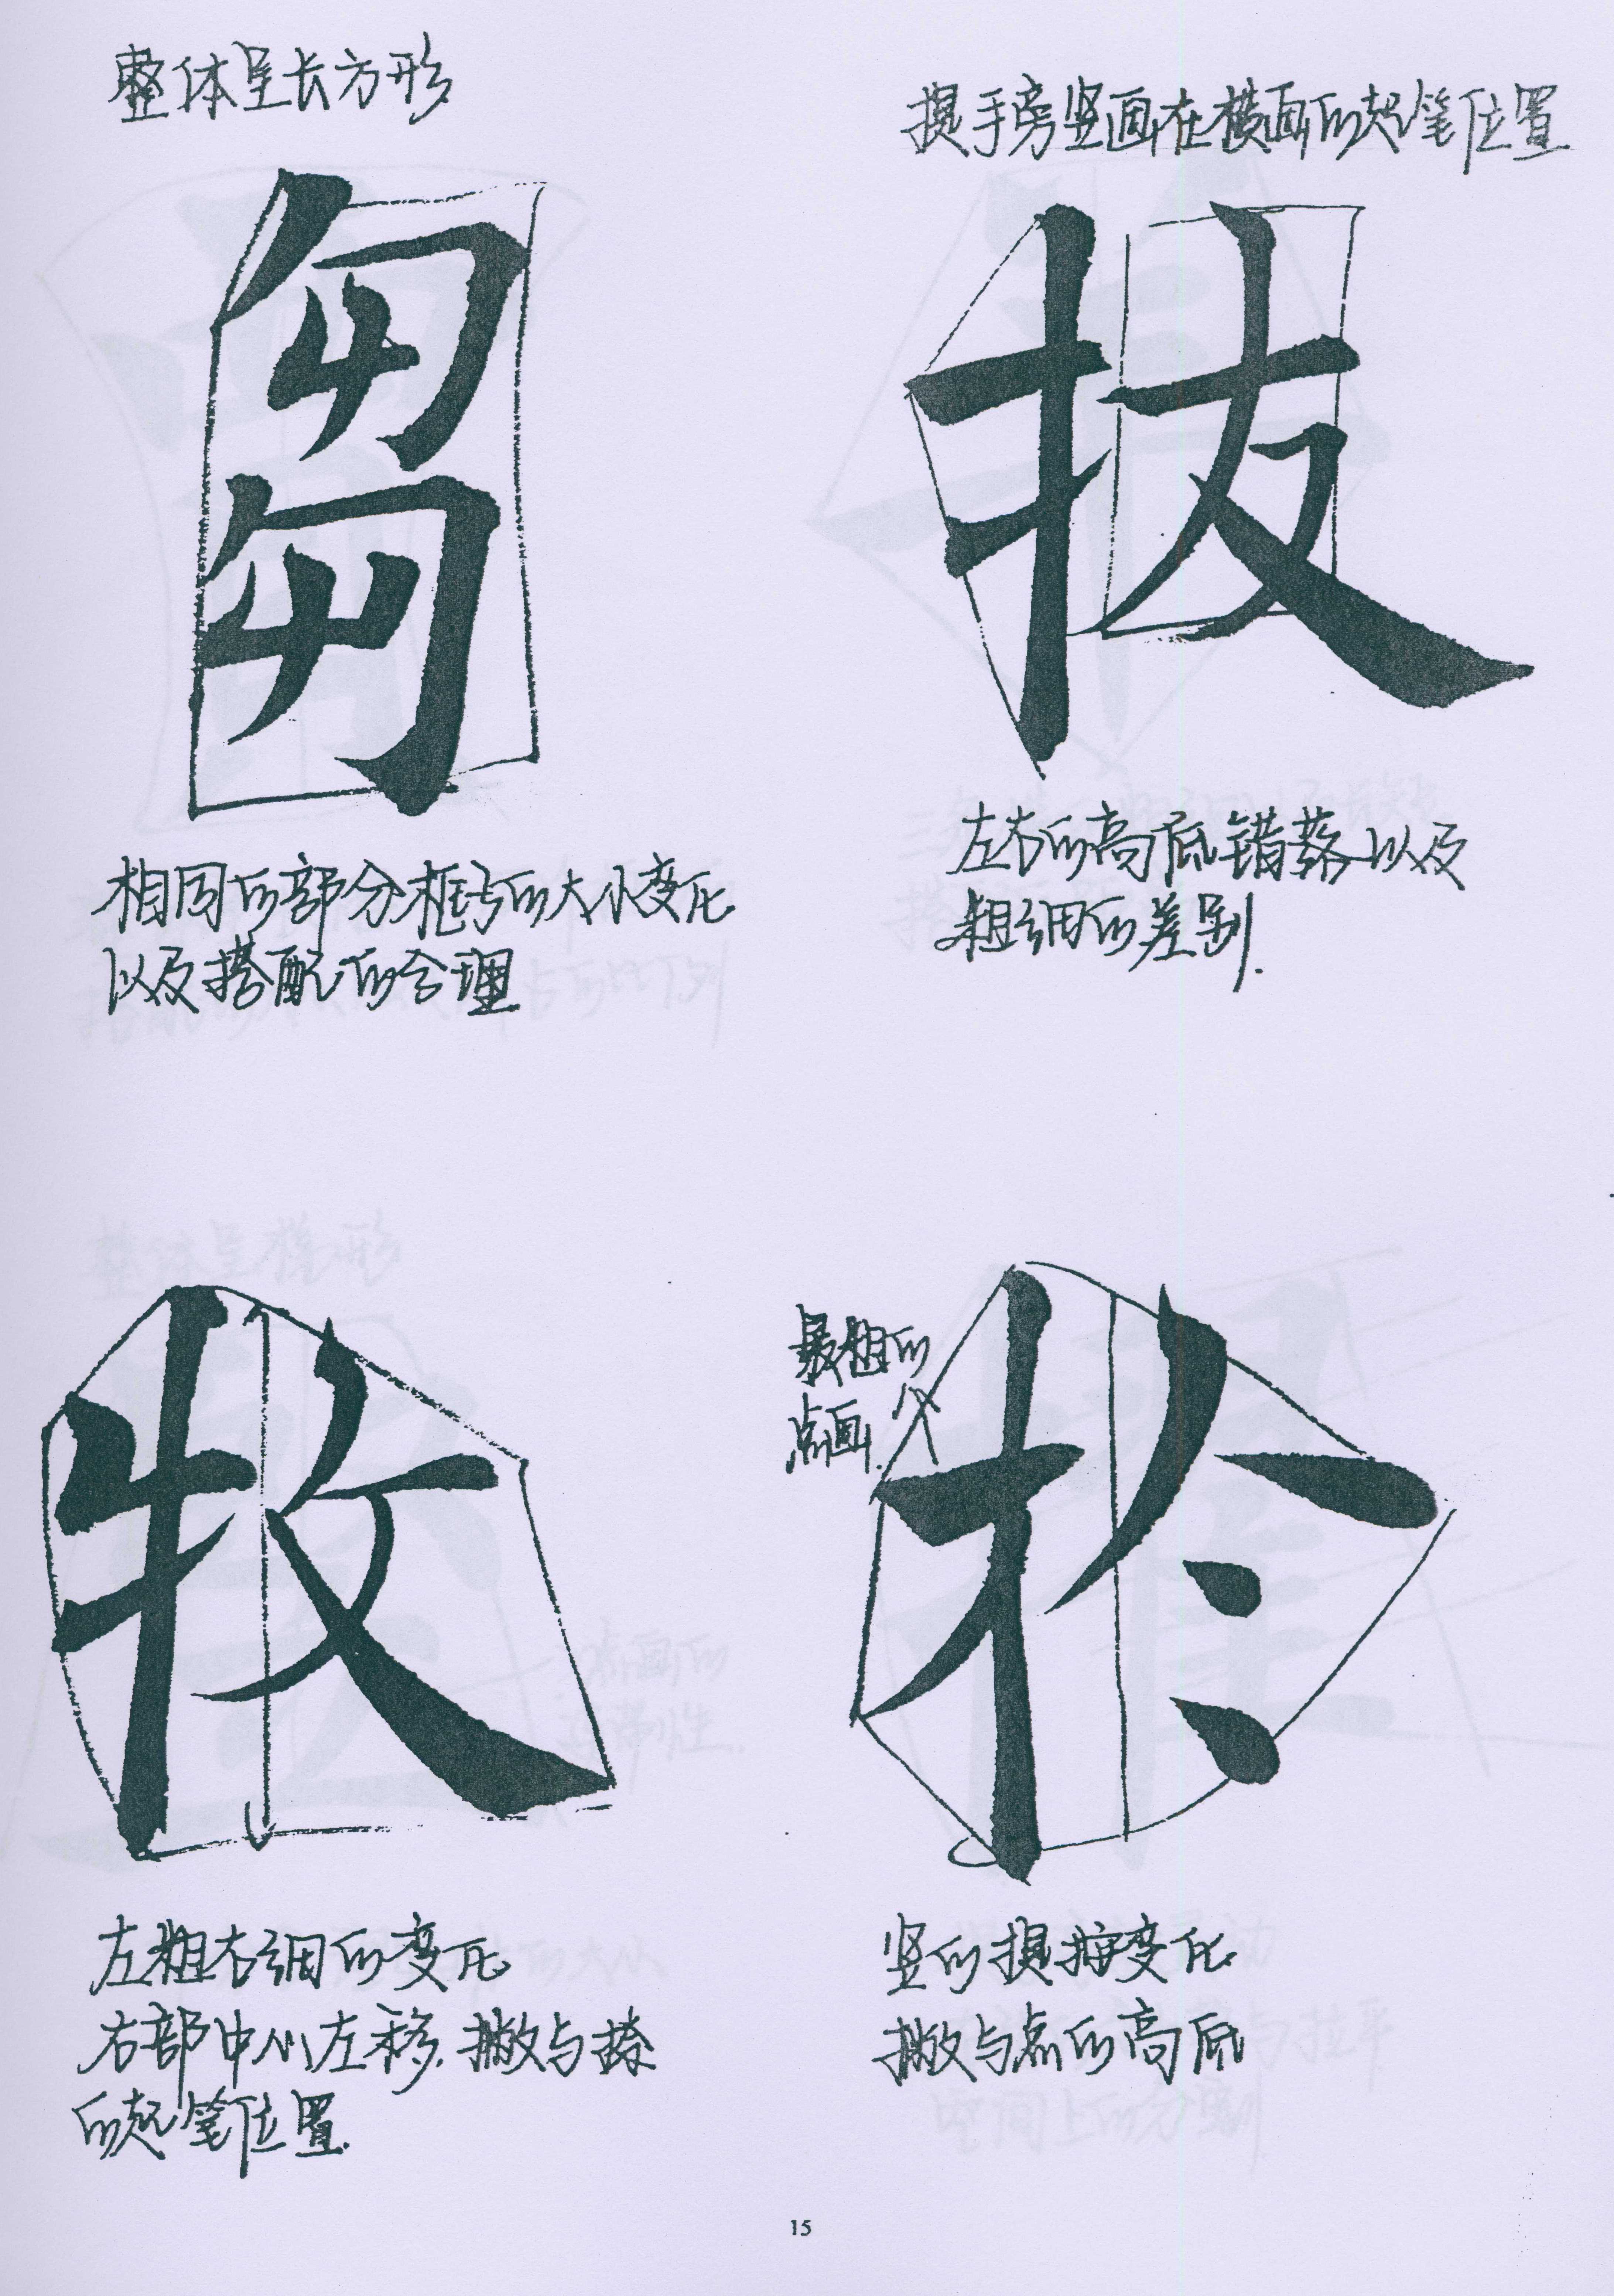 整体呈长方形
芻
相同的部分框与的大小变化
以及搭配的合理
提手旁竖画在横画的起笔位置
拔
左右的高低错落以及
粗细的差别.
牧
左粗右细的变化
右部中心左移.撇与捺
的起笔位置.
最粗的
点画.
於
竖的提按变化
撇与点的高低
15